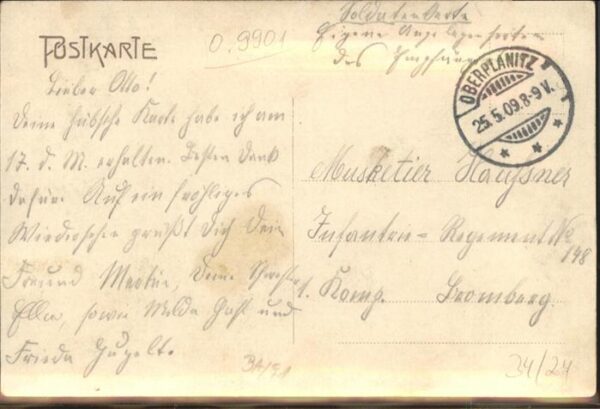 Soldatenkarte
Eigene Angelegenheiten
des Empfängers
POSTKARTE
0.9901
OBERPLANITZ
25.5.09.8-9V.
Lieber Otto!
Deine hübsche Karte habe ich am
17. d. M. erhalten. Besten Dank
dafür. Auf ein fröhliges
Wiedersehen grüßt Dich Dein
Freund Martin, Deine Schwester
Ella, sowie Melda und
Frieda
Musketier Haussner
Infanterie-Regiment No
148
Komp. Bromberg.
34/24